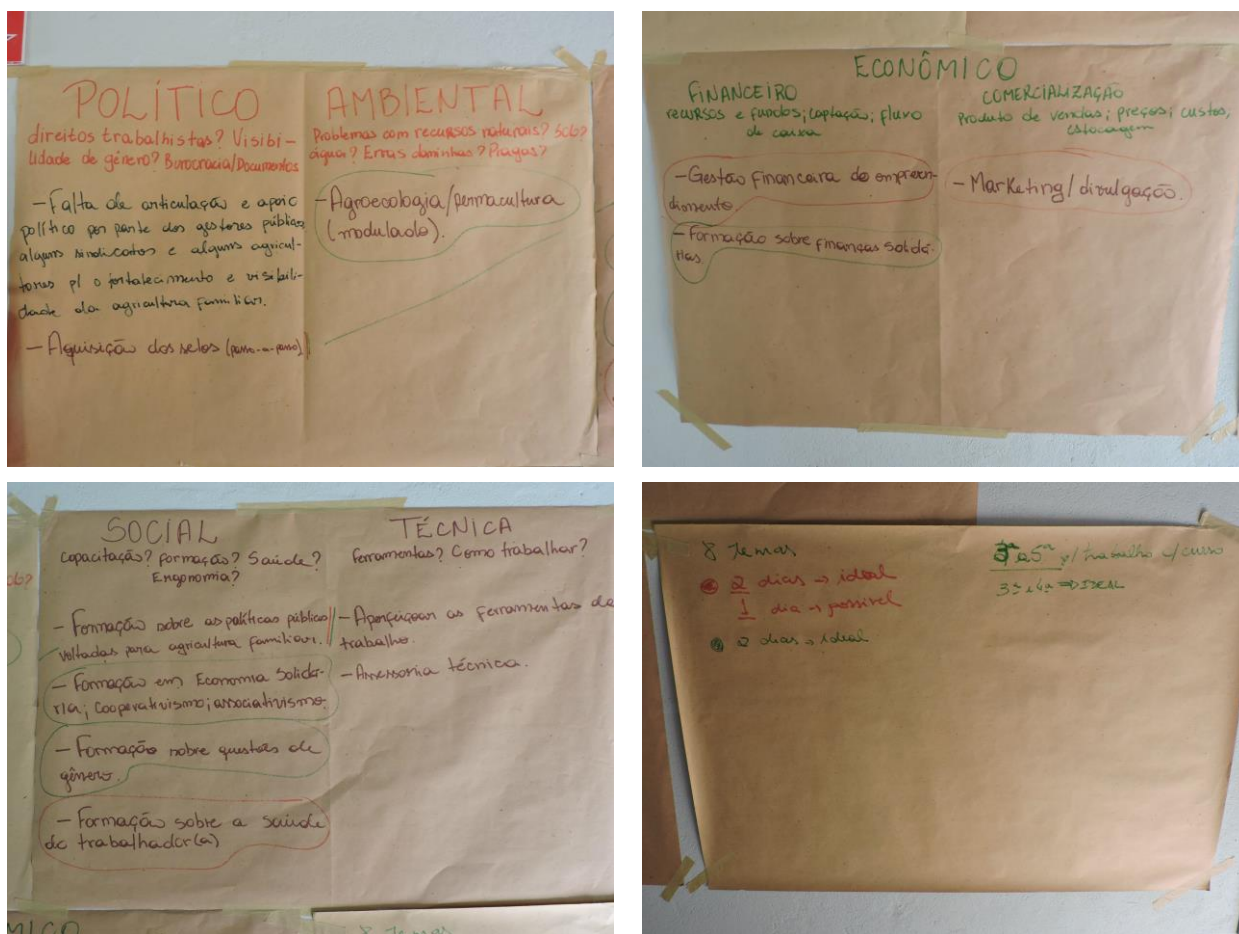 POLÍTICO
direitos trabalhistas? Visibi-
lidade de gênero? Burocracia/Documentos
- Falta de articulação e apoio
político por parte dos gestores públicos
alguns sindicatos e alguns agricul-
tores p/ o fortalecimento e visibili-
dade da agricultura familiar.
- Aquisição dos selos (passo-a-passo)
AMBIENTAL
Problemas com recursos naturais? Solo?
água? Ervas daninhas? Pragas?
- Agroecologia/permacultura
(modulado).
ECONÔMICO
FINANCEIRO
recursos e fundos; captação; fluxo
de caixa
- Gestão financeira do empreen-
dimento.
- Formação sobre finanças solidá-
rias.
COMERCIALIZAÇÃO
Produto de vendas; preços; custos,
estocagem
- Marketing/divulgação.
SOCIAL
Capacitação? Formação? Saúde?
Ergonomia?
- Formação sobre as políticas públicas
voltadas para agricultura familiar.
- Formação em Economia Solidá-
ria; Cooperativismo; associativismo.
- Formação sobre questões de
gênero.
- Formação sobre a saúde
do trabalhador(a)
TÉCNICA
Ferramentas? Como trabalhar?
- Aperfeiçoar as ferramentas de
trabalho.
- Assessoria técnica.
8 Temas
2 dias → ideal
1 dia → possível
2 dias → ideal
3ª a 5ª p/ trabalho c/ curso
3ª e 4ª ⇒ IDEAL
MICO
8 Temas